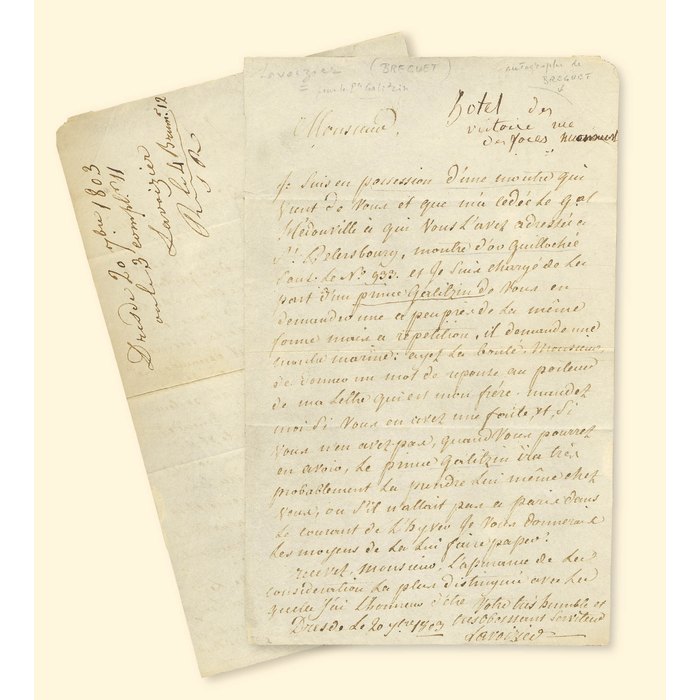 Lavoizier (BREGUET)
= pour le Pce Galitzin
autographe de
BREGUET
Monsieur,
hotel des
victoire rue
des
Je Suis en possession d'une montre qui
vient de Vous et que m'a cedée Le Gal
hédouville à qui Vous L'avez adressée a
St. Petersboury, montre d'or Guillochée
Sous Le No. 933. et Je Suis chargé de La
part d'un prince Galitzin de Vous en
demander une a peu pres de La même
forme mais a répétition, il demande une
montre marine: ayez La bonté, Monsieur,
de donner un mot de réponse au porteur
de ma Lettre qui est mon frére. mandez
moi Si Vous en avez une faite, et, Si
Vous n'en avez pas, quand Vous pourrez
en avoir, Le prince Galitzin ira très
probablement La prendre Lui même chez
Vous, ou S'il n'allait pas a paris dans
Le courant de L'hyver Je Vous donnerais
Les moyens de La Lui faire passer.
recevez, monsieur, L'assurance de La
considération La plus distinguée avec La
quelle J'ai L'honneur d'être Votre très humble et
Dresde Le 20 7bre 1803 très obeissant Serviteur
Lavoizier
Dresde 20 7bre 1803
ou le 3 compl. 11
Lavoizier
R le 4 Brum. 12